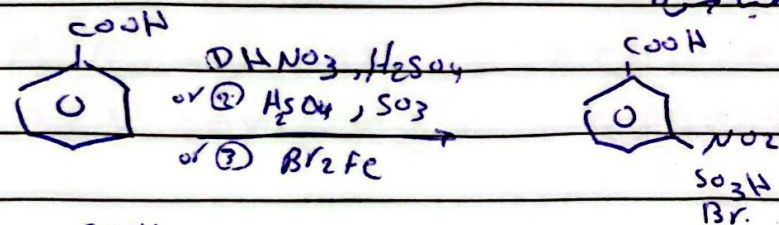 COOH
① HNO3, H2SO4
or ② H2SO4, SO3
or ③ Br2 Fe
COOH
NO2
SO3H
Br.